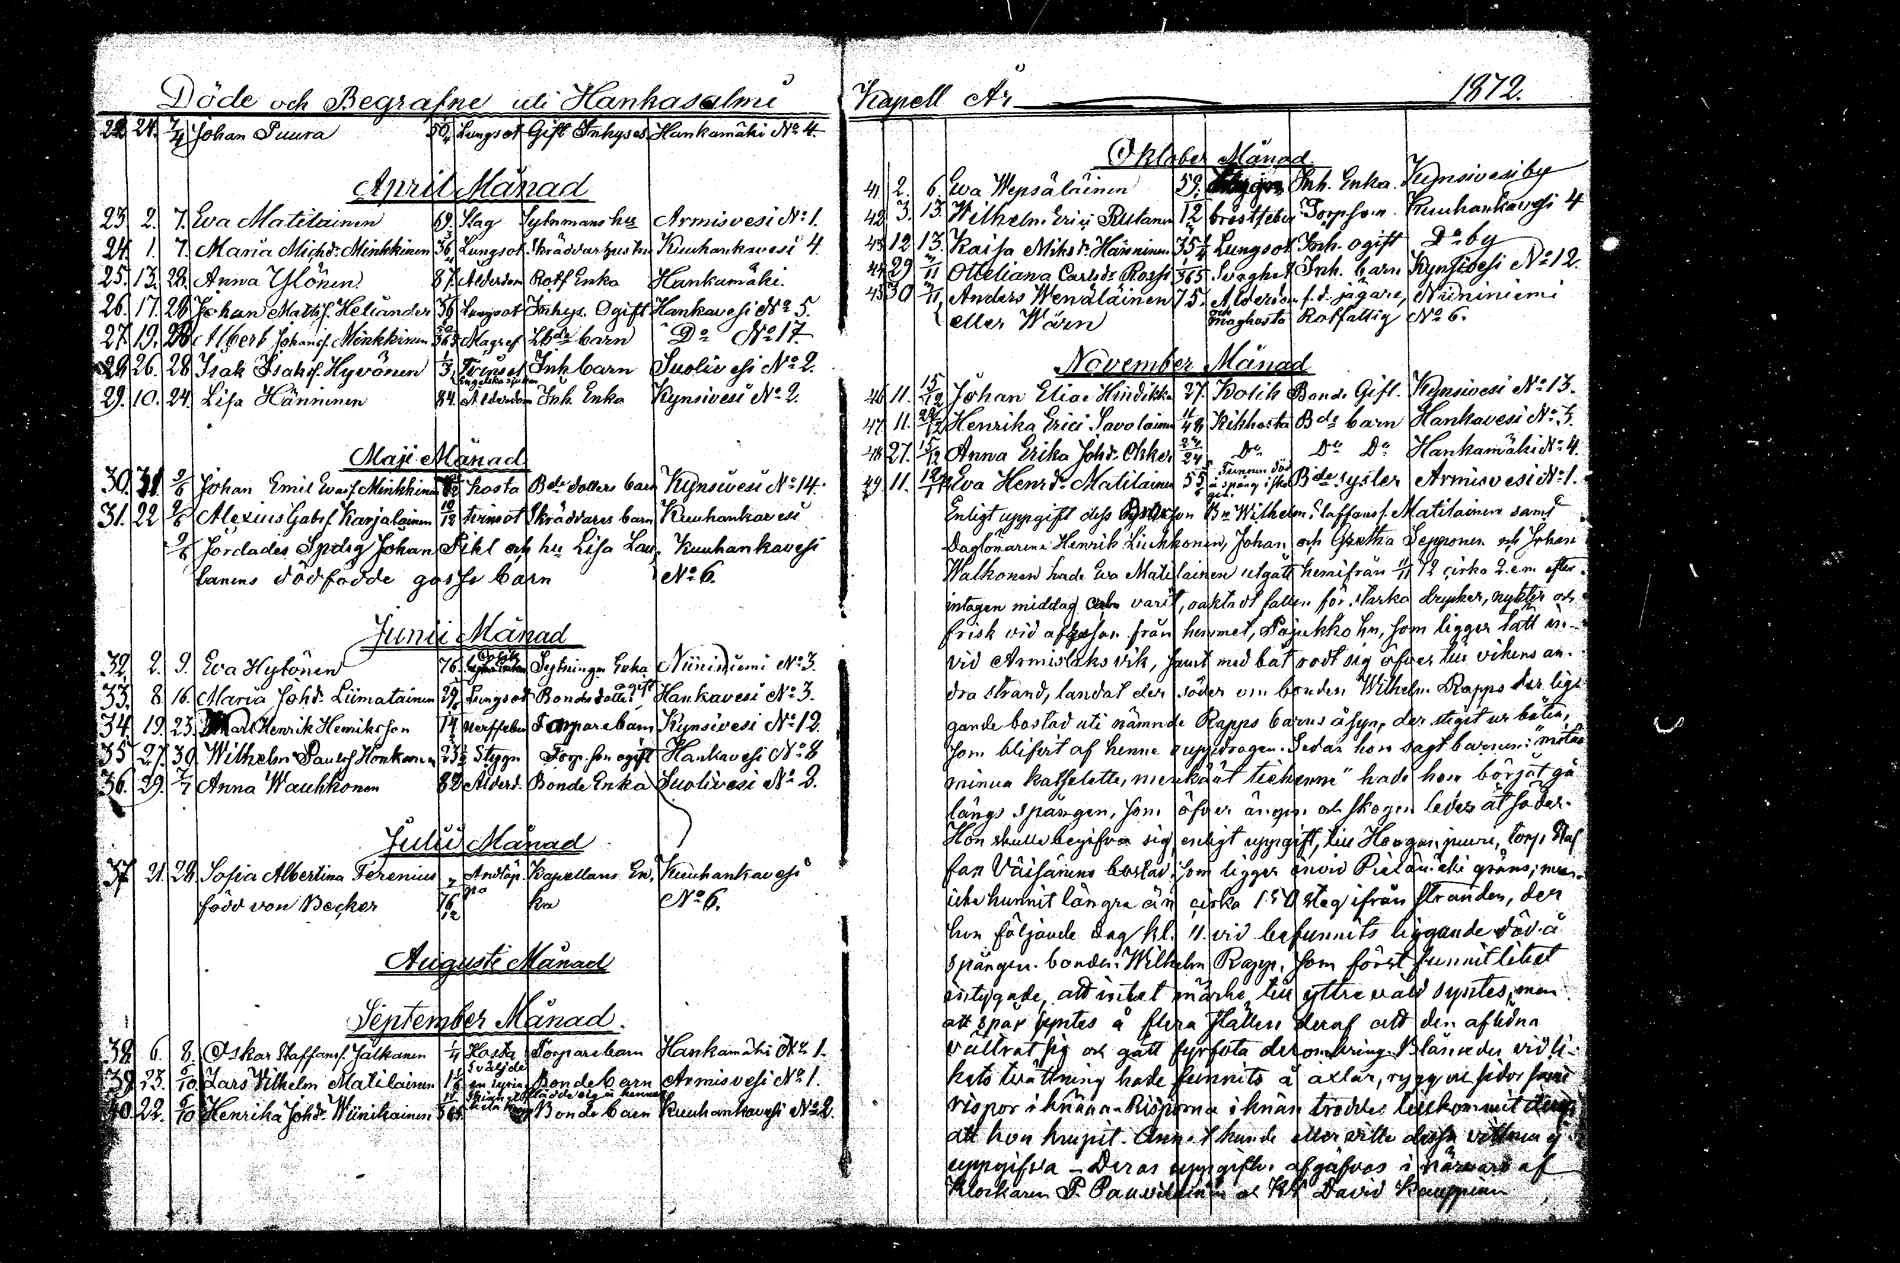 Döde och Begrafne uti Hankasalmi
22 24. 7/4 Johan Puura 50 Lungsot Gift Inhyses Hankamäki No 4.
April Månad
23. 2. 7. Eva Matilainen 69. Slag Sytnmans hu Armisvesi No 1.
24. 1. 7. Maria Michsdr Minkkinen 36 Lungsot Skräddarhustru Kuuhankavesi 4
25. 13. 28. Anna Ylönen 87. Ålderdom Rotf Enka Hankamäki.
26. 17. 28 Johan Mathsf. Heliander 36 Lungsot Inhys. Ogift Hankavesi No 5.
27. 19. 28 Albert Johansf. Minkkinen Magref Lbde barn Do No 17
28 26. 28 Isak Isaksf. Hyvönen 1/3 Tvinsot Engelska sjukan Inh barn Suolivesi No 2.
29. 10. 24. Lisa Hänninen 84. Ålderdom Inh. Enka Kynsivesi No 2.
Maji Månad
30. 31. 2/6 Johan Emil Evasf. Minkkinen hosta Bde dotters barn Kynsivesi No 14.
31. 22 2/6 Alexius Gabsf. Karjalainen 10/12 tvinsot Skräddares barn Kuuhankavesi
2/6 Jördades Spdrg Johan Pihl och hu Lisa Lau, Kuuhankavesi
lanens dödfödde gosse barn No 6.
Junii Månad
32. 2. 9. Eva Hytönen 76. Colik Sytninge Enka Niininiemi No 3.
33. 8 16. Maria Johdr Liimatainen 29 Lungsot Bondedotter ogift Hankavesi No 3.
34. 19. 23. Karl Henrik Henriksson 14 nerffeber Torparebarn Kynsivesi No 12.
35 27. 30. Wilhelm Paulsf Honkonen 23½ Stygn Torp. son ogift Hankavesi No 8
36. 29. 7/7 Anna Wauhkonen 82 Ålderd. Bonde Enka Suolivesi No 2.
Julii Månad
37 21. 28. Sofia Albertina Ferenius Andtäp Kapellans En, Kuuhankavesi
född von Becker 76 pa ka No 6.
Augusti Månad
September Månad.
38. 6. 8. Oskar Staffansf. Jalkanen 1/4 Hosta Torparebarn Hankamäki No 1.
39. 23. 6/10. Lars Wilhelm Matilainen Sväljde en Bondebarn Armisvesi No 1.
40. 22. 6/10 Henrika Johdr Wiinikainen Bonde barn Kuuhankavesi No 2.
Kapell År 1872.
Oktober Månad.
41 2. 6. Eva Wepsäläinen 59. Stygn Inh. Enka. Kynsivesi by
42 3. 13. Wilhelm Erici Rutanen 12 bröstfeber Torpson. Kuuhankavesi 4
43 12 13. Kaisa Miksdr Hänninen 35¼ Lungsot Inh. ogift Do by
44 29 Otteliana Carlsdr Rossi 1/365 Svaghet Inh. barn Kynsivesi No 12.
45 30 Anders Wenäläinen 75. Ålderdom f.d. jägare, Niininiemi
eller Wärn och maghosta Rotfattig No 6.
November Månad
46 11. 15/12 Johan Eliae Hindikka 27. Kolik Bonde Gift. Kynsivesi No 13.
47 11. Henrika Erici Savolainen 4/48 Kikhosta Bde barn Hankavesi No 3.
48 27. 15/12 Anna Erika Johdr Ohker Do Do Do Hankamäki No 4.
49 11. Eva Henrdr Matilainen 55 Funnen död å spång Bde syster Armisvesi No 1.
Enligt uppgift dess Brorson Bn Wilhelm Staffansf. Matilainen samt
Daglönarena Henrik Liukkonen, Johan och Gretha Sepponen och Johan
Walkonen hade Eva Matilainen utgått hemifrån 5/11 72 cirka 2. e.m. efter
intagen middag varit, oaktadt fallen för starka drycker, nykter och
frisk vid afresan från hemmet, Pajukko hn, som ligger tätt in-
vid Armislaks vik, samt med båt rodt sig öfver till vikens an-
dra strand, landat der söder om bonden Wilhelm Rapps der lig-
gande bostad uti nämnde Rapps barns åsyn, der stigit ur båten,
som blifvit af henne uppdragen. Sedan hon sagt barnen: "mitäs
minua katselette, menkäät tiehenne" hade hon börjat gå
längs spången, som öfver ängen och skogen leder åt söder.
Hon skulle begifva sig, enligt uppgift, till Hongan juuri, torp. Staf
fan Väisänens bostad, som ligger invid Pieksämäki gräns; men
icke hunnit längre än cirka 150 steg ifrån stranden, der
hon följande dag kl. 11. vid befunnits liggande död å
spången. bonden Wilhelm Rapp, som först funnit liket
intygade, att intet märke till yttre våld syntes, men
att spår syntes å flera ställen deraf att den aflidna
vältrat sig och gått fyrfota deromkring. Blånader vid li-
kets tvättning hade funnits å axlar, rygg och sidor samt
rispor i knäna. Risporna i knän troddes tillkommit deraf
att hon krupit. Annat kunde eller ville dessa vittnen ej
uppgifva – Deras uppgifter afgåfvos i närvaro af
Klockaren P. Pauvilainen och Kv David Kauppinen